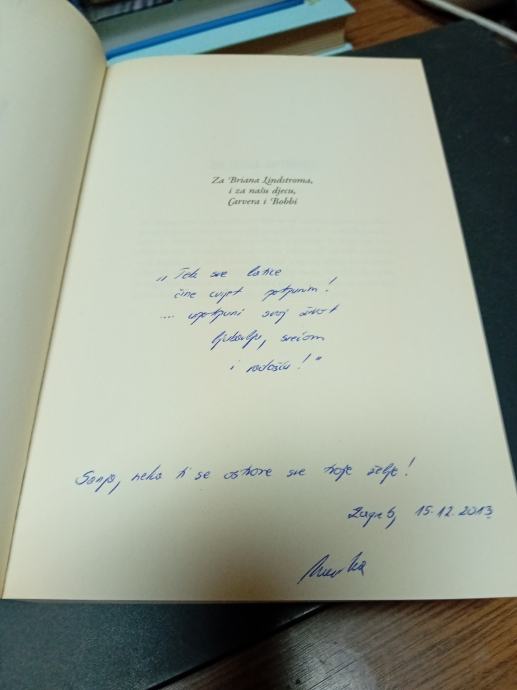 Za Briana Lindstroma,
i za našu djecu,
Carvera i Bobbi
„ Tek sve latice
čine cvijet potpunim!
.... upotpuni svoj život
ljubavlju, srećom
i radošću! "
Sanja, neka ti se ostvare sve tvoje želje!
Zagreb, 15.12.2013.